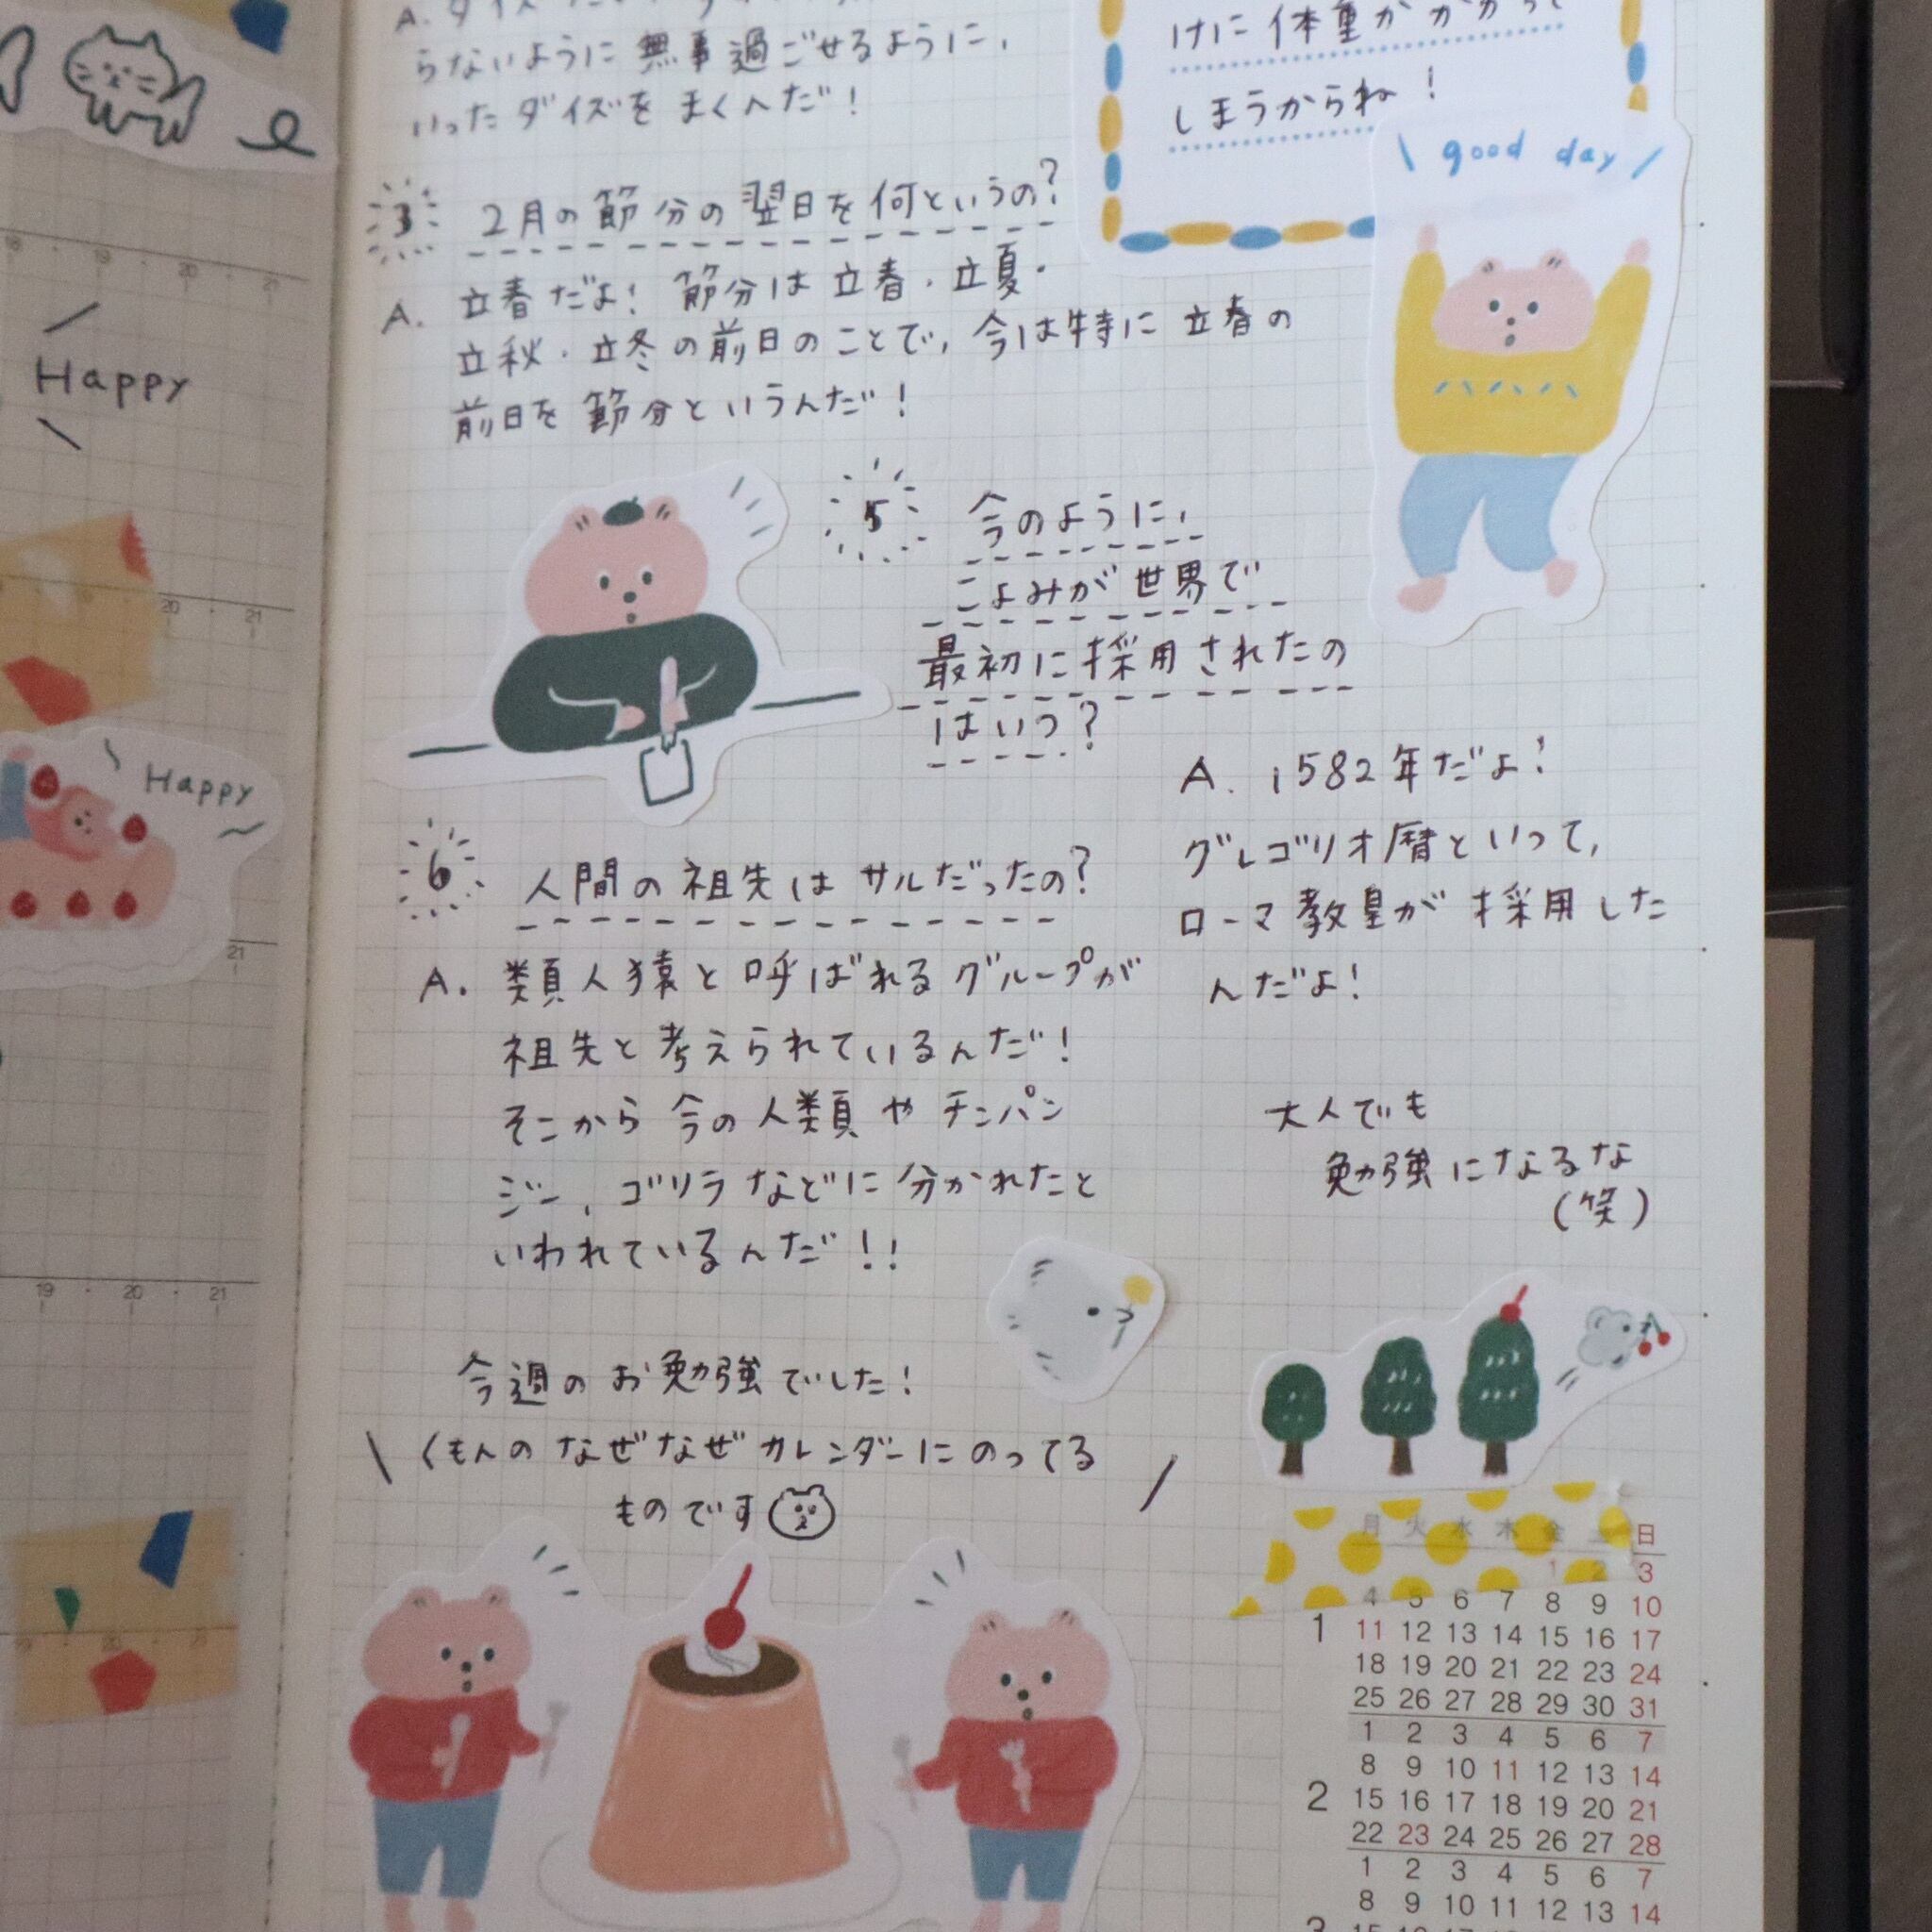 らないように 無事過ごせるように、
いったダイズをまくんだ!
けに体重がかかって
しまうからね!
\ good day /
3 2月の節分の翌日を何というの?
A. 立春だよ! 節分は立春・立夏・
立秋・立冬の前日のことで、今は特に立春の
前日を節分というんだ!
5 今のように、
こよみが世界で
最初に採用されたの
はいつ?
A. 1582年だよ!
グレゴリオ暦といって、
ローマ教皇が採用した
んだよ!
6 人間の祖先はサルだったの?
A. 類人猿と呼ばれるグループが
祖先と考えられているんだ!
そこから今の人類やチンパン
ジー、ゴリラなどに分かれたと
いわれているんだ!!
大人でも
勉強になるな
(笑)
今週のお勉強でした!
\ くもんのなぜなぜカレンダーにのってる /
ものです
Happy
Happy
18 19 20 21
20 21
21
19 20 21
月 火 水 木 金 日
1 2 3
4 5 6 7 8 9 10
1 11 12 13 14 15 16 17
18 19 20 21 22 23 24
25 26 27 28 29 30 31
1 2 3 4 5 6 7
8 9 10 11 12 13 14
2 15 16 17 18 19 20 21
22 23 24 25 26 27 28
1 2 3 4 5 6 7
8 9 10 11 12 13 14